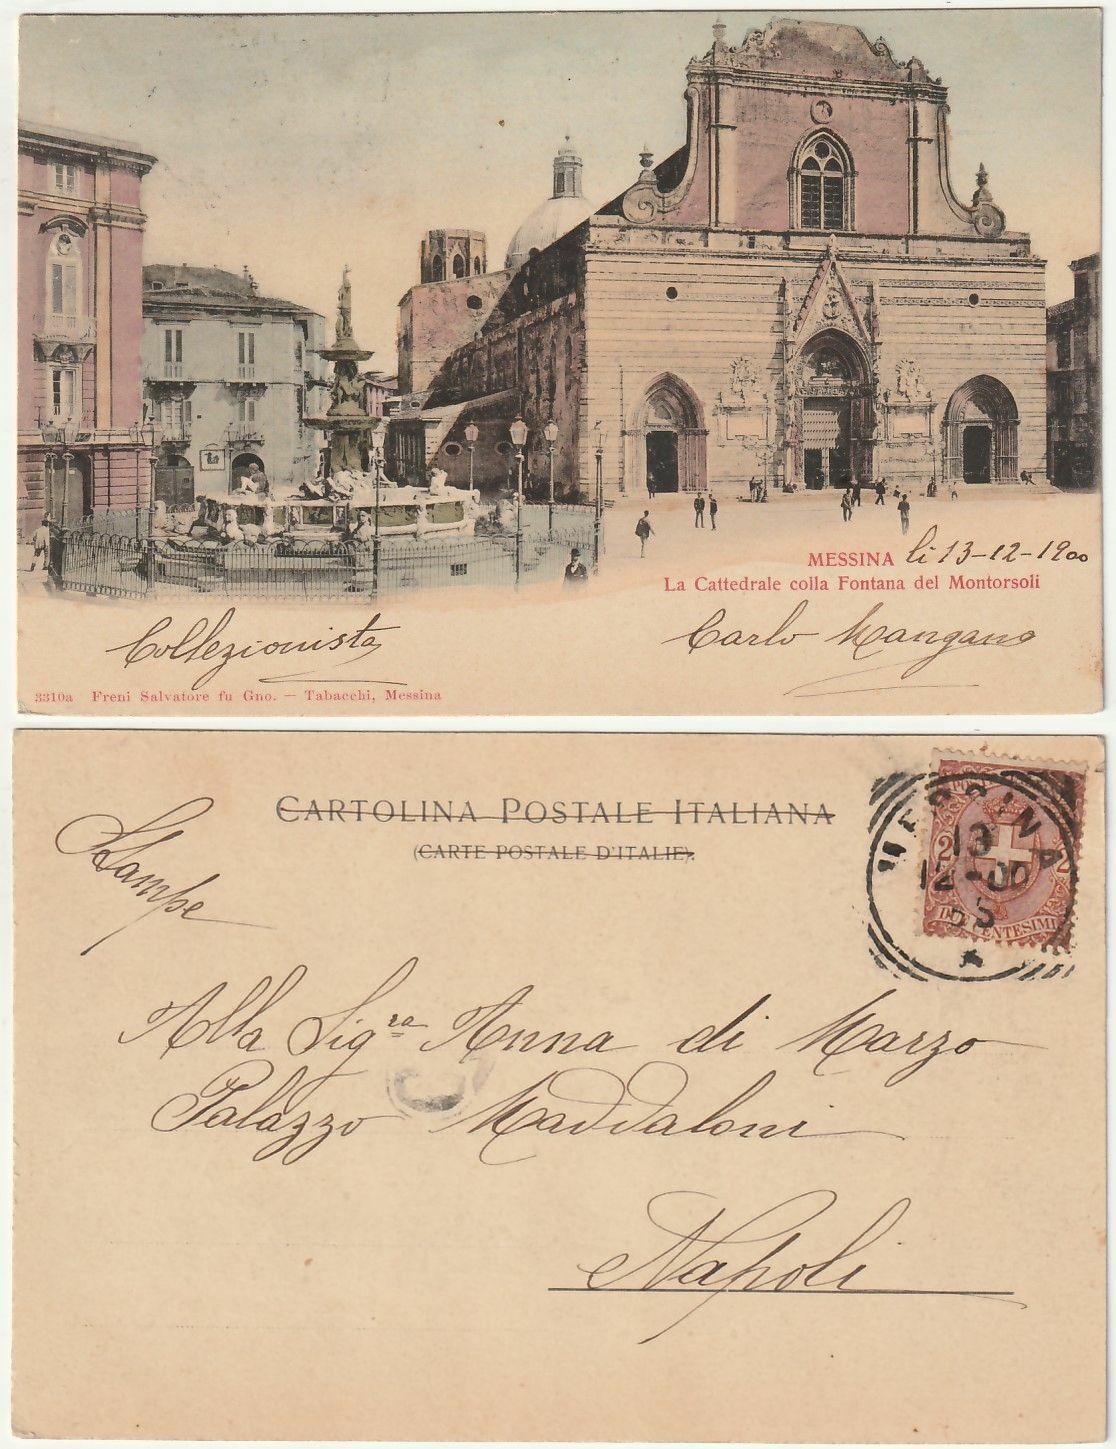 MESSINA li 13-12-1900
La Cattedrale colla Fontana del Montorsoli
Collezionista
Carlo Mangano
3310a Freni Salvatore fu Gno. — Tabacchi, Messina
CARTOLINA POSTALE ITALIANA
(CARTE POSTALE D'ITALIE).
Stampe
MESSINA
13
12-00
5 S
2
DUE CENTESIMI
Alla Sigra Anna di Marzo
Palazzo Maddaloni
Napoli